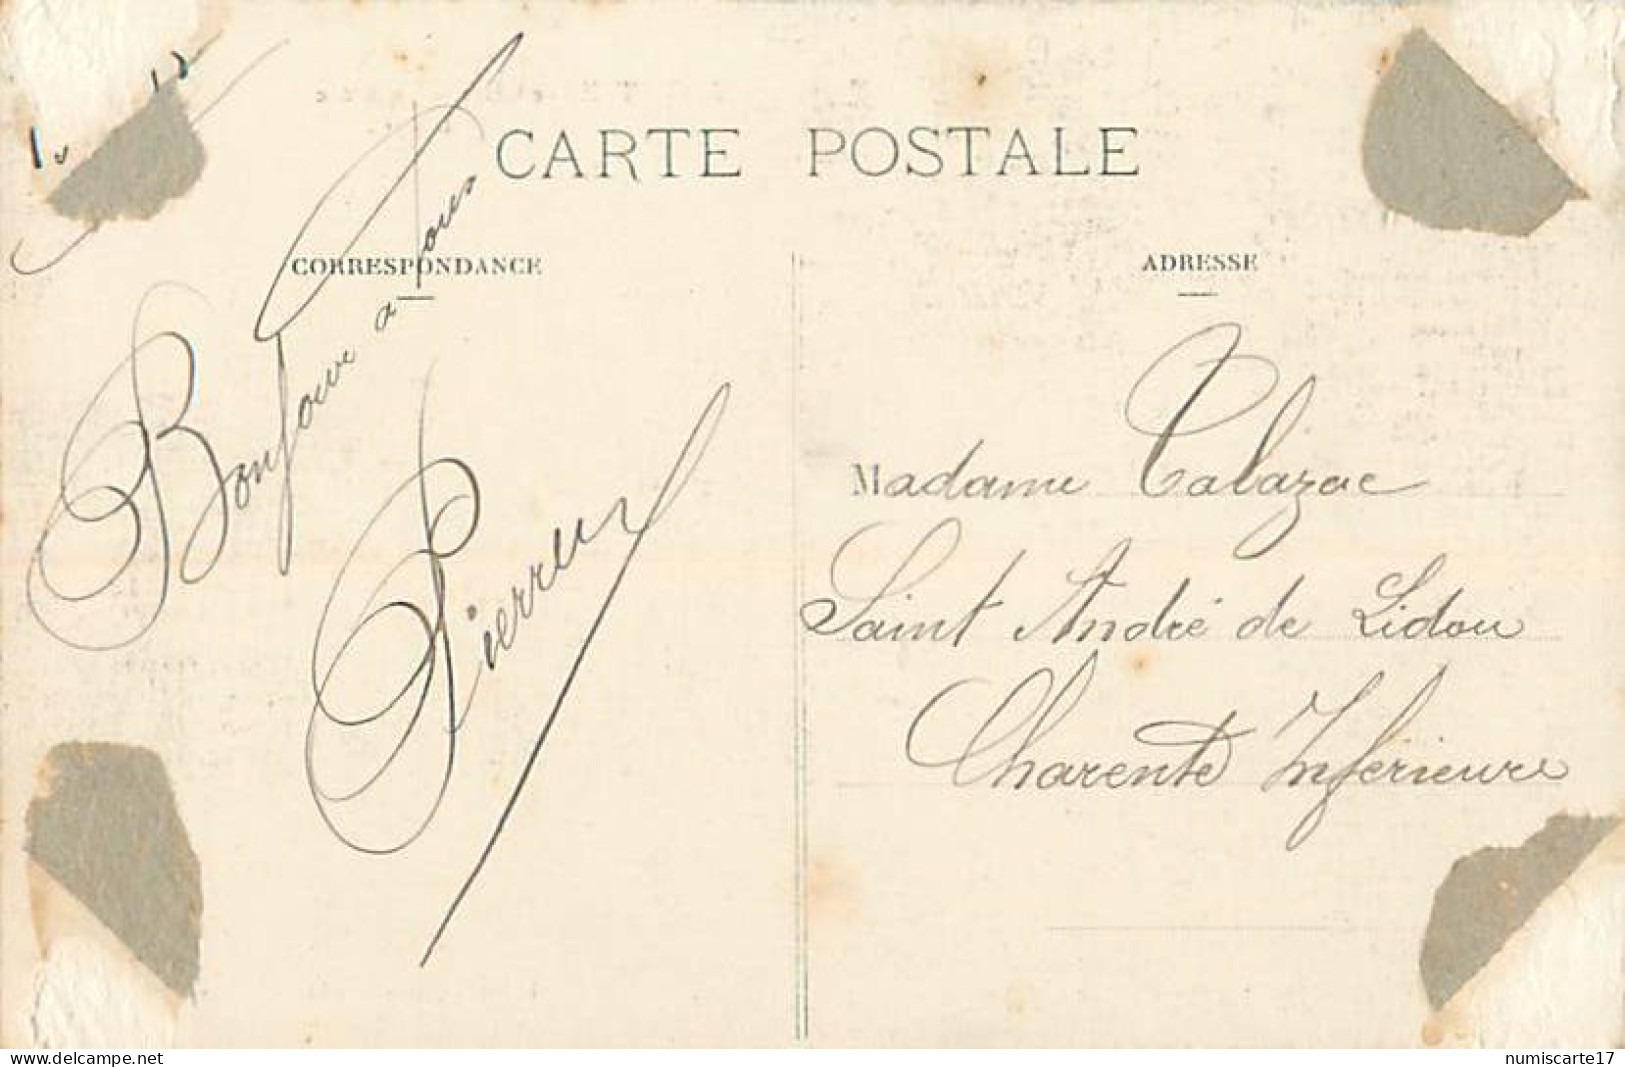 CARTE POSTALE
CORRESPONDANCE
ADRESSE
Bonjour a Tous
Pierre
Madame Calazac
Saint André de Lidon
Charente Inférieure
www.delcampe.net
numiscarte17